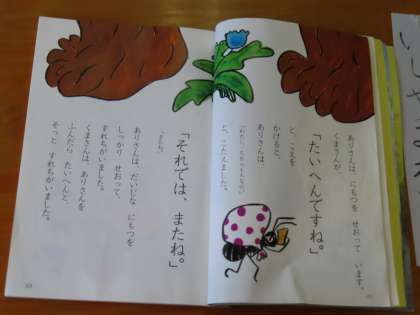 ありさんは、にもつを せおって います。
くまさんが、
「たいへんですね。」
と、こえを
かけると、
ありさんは
と、こたえました。
「それでは、またね。」
ありさんは、だいじな にもつを
しっかり せおって、
すれちがいました。
くまさんは、ありさんを
ふんだら たいへんと、
そっと すれちがいました。